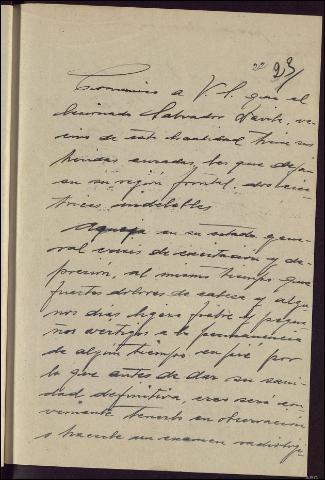 nº 23/
Comunico a V.S. que el
lesionado Salvador Dávila, ve-
cino de esta localidad tiene sus
heridas curadas, las que dejan
en su región frontal, dos cica-
trices indelebles
Aqueja en su estado gene-
ral crisis de excitación y de-
presión, al mismo tiempo que
fuertes dolores de cabeza y algu-
nos dias ligera fiebre y peque-
ños vertigos a la permanencia
de algún tiempo en pié por
lo que antes de dar su sani-
dad definitiva, creo será con-
veniente tenerlo en observación
y hacerle un examen radioló-